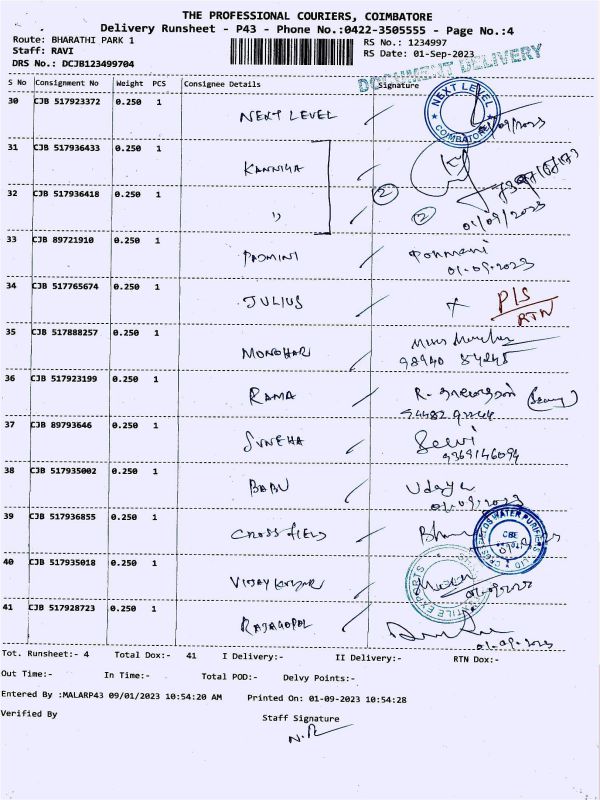 THE PROFESSIONAL COURIERS, COIMBATORE
Delivery Runsheet - P43 - Phone No.:0422-3505555 - Page No.:4
Route: BHARATHI PARK 1
RS No.: 1234997
Staff: RAVI
RS Date: 01-Sep-2023
DRS No.: DCJB123499704
DOCUMENT DELIVERY
S No Consignment No Weight PCS Consignee Details Signature
30 CJB 517923372 0.250 1 NEXT LEVEL
NEXT LEVEL COIMBATORE
01/09/2023
31 CJB 517936433 0.250 1 KANNIYA
32 CJB 517936418 0.250 1 " 2 2
01/09/2023
33 CJB 89721910 0.250 1 PADMINI Ponmani
01-09-2023
34 CJB 517765674 0.250 1 JULIUS P/S
RTN
35 CJB 517888257 0.250 1 MONOHAR
98940 84245
36 CJB 517923199 0.250 1 RAMA R.
37 CJB 89793646 0.250 1 SUNEHA Selvi
9369146094
38 CJB 517935002 0.250 1 BABU Udaya
01-09-2023
39 CJB 517936855 0.250 1 CROSS FIELD
CROSS FIELDS WATER PURIFIERS CBE
40 CJB 517935018 0.250 1 VIJAY KUMAR
TEXTILE EXPORTS
01-09-2023
41 CJB 517928723 0.250 1 RAJAGOPOL
01-09-2023
Tot. Runsheet:- 4 Total Dox:- 41 I Delivery:- II Delivery:- RTN Dox:-
Out Time:- In Time:- Total POD:- Delvy Points:-
Entered By :MALARP43 09/01/2023 10:54:20 AM Printed On: 01-09-2023 10:54:28
Verified By Staff Signature
N.R